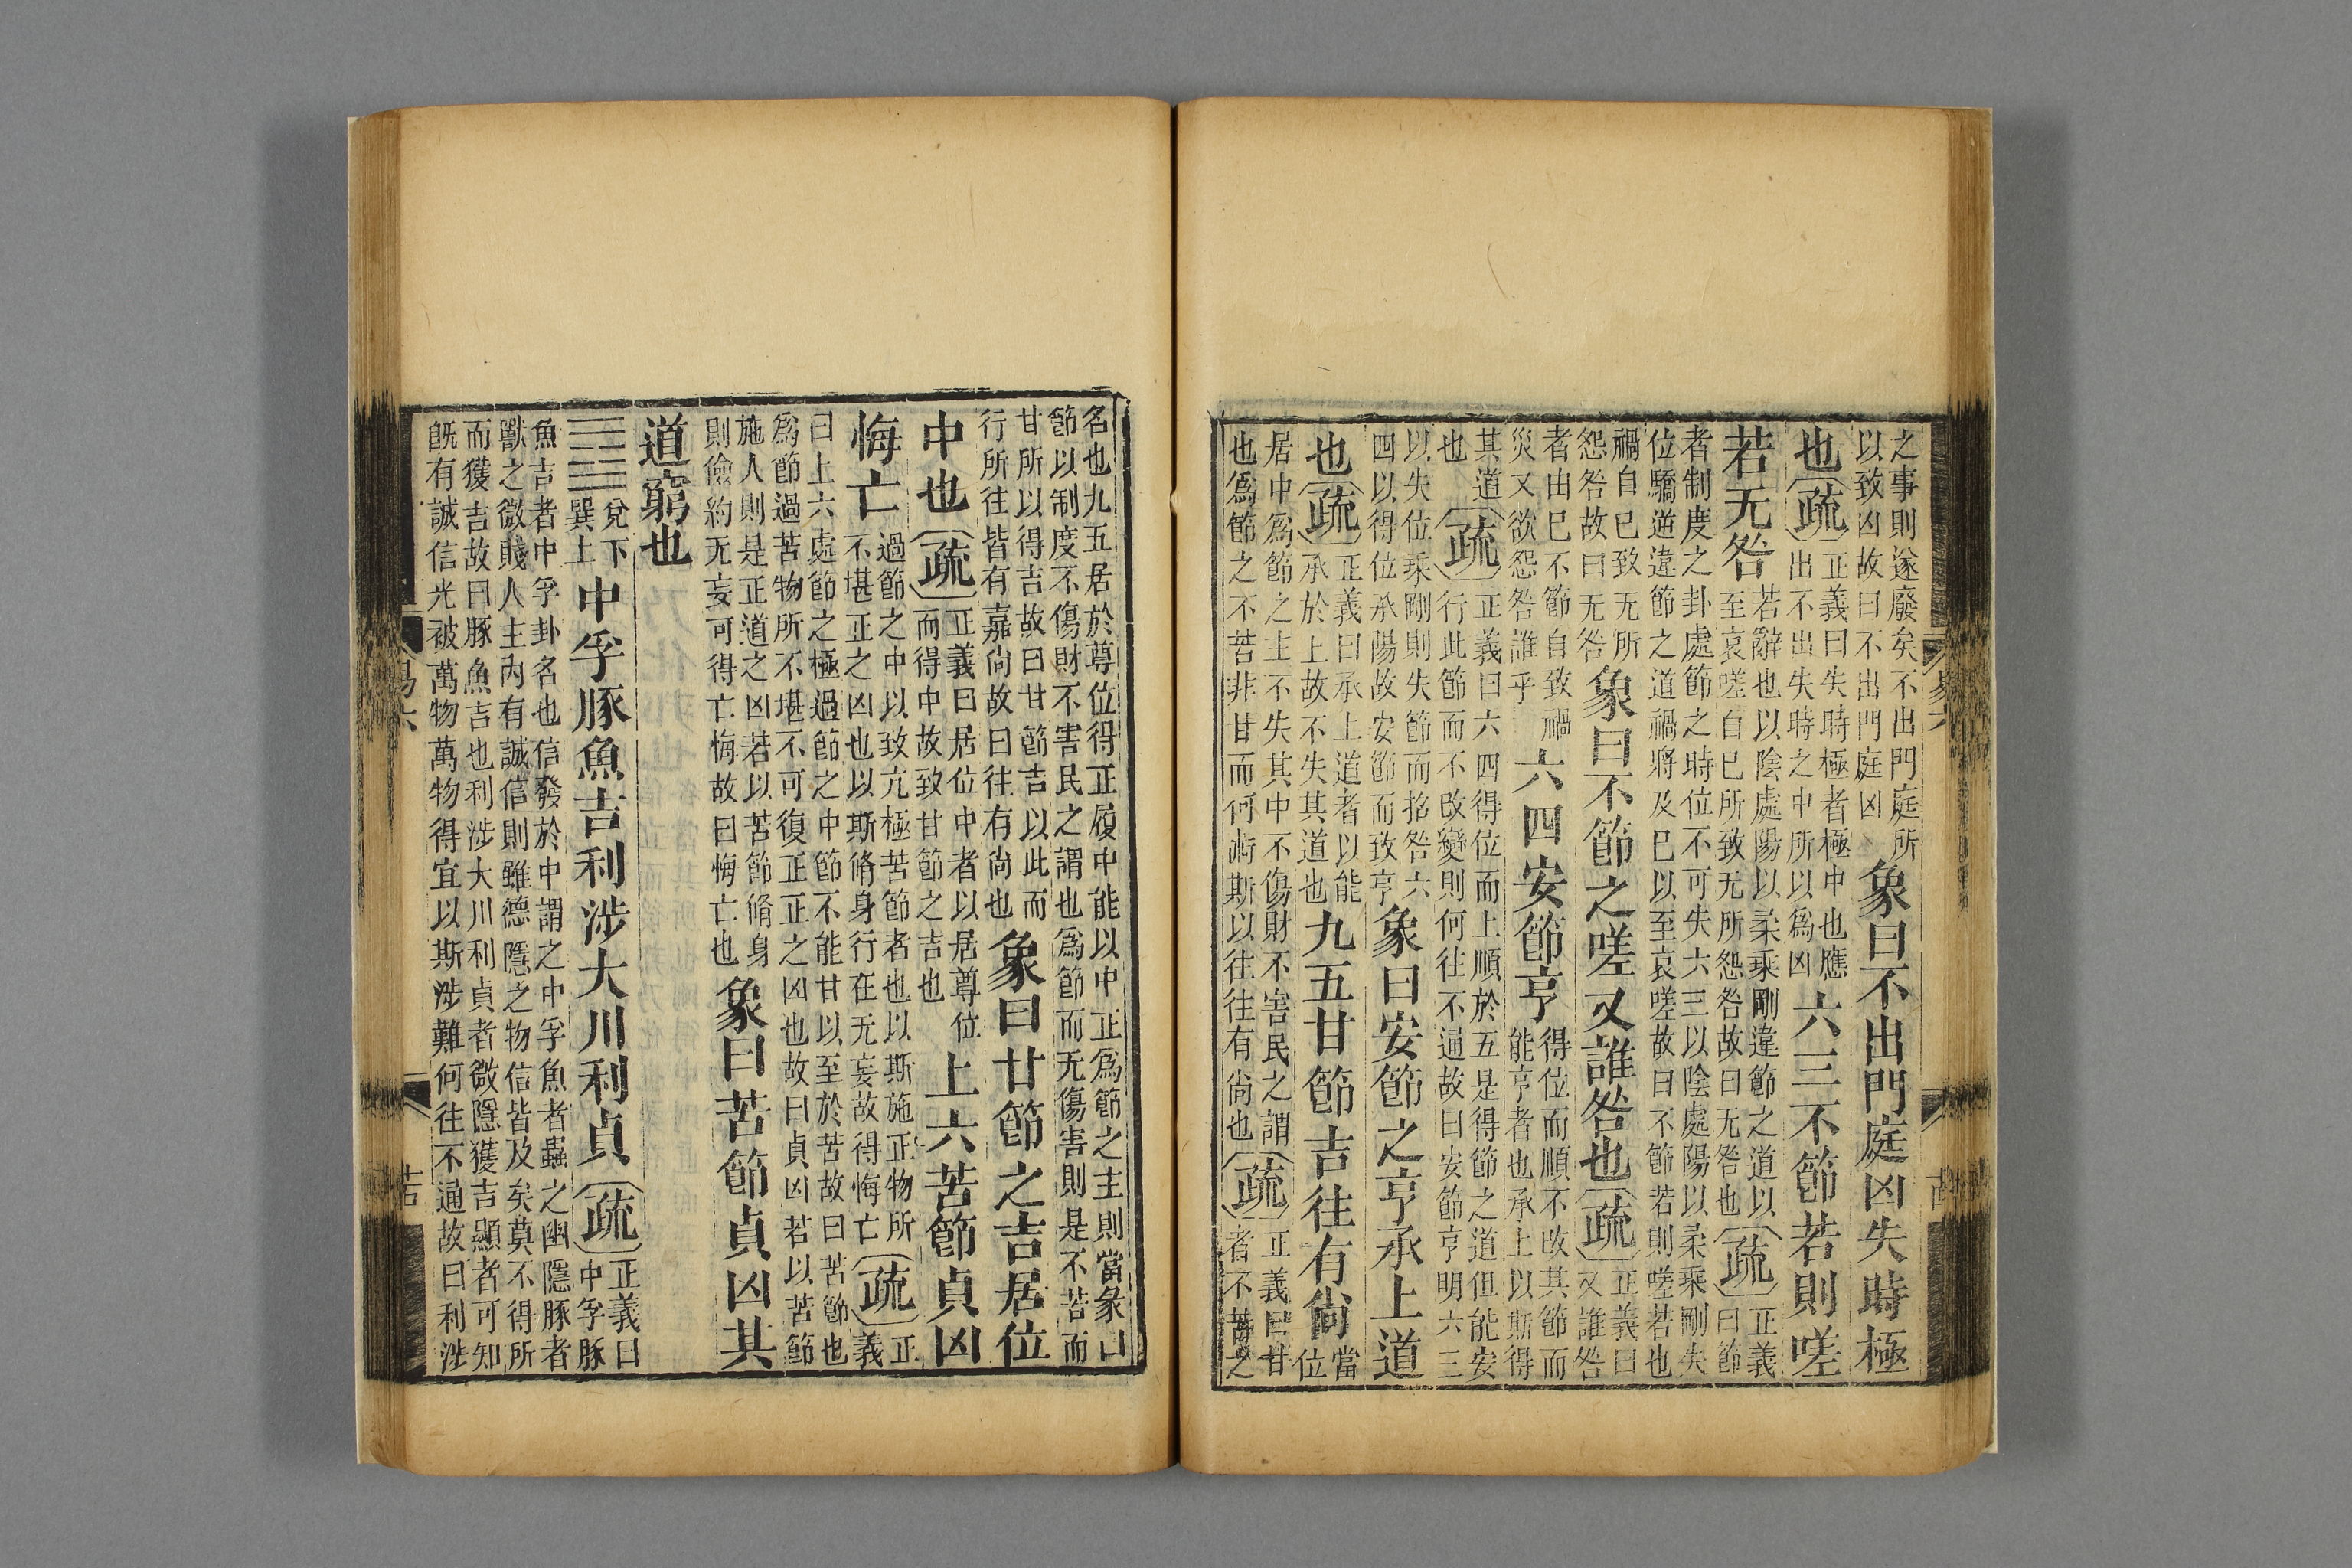 之事則遂廢矣不出門庭所
以致凶故曰不出門庭凶
象曰不出門庭凶失時極
也
疏
正義曰失時極者極中也應
出不出失時之中所以爲凶
六三不節若則嗟
若无咎
若辭也以陰處陽以柔乘剛違節之道以
至哀嗟自巳所致无所怨咎故曰无咎也
疏
正義
曰節
者制度之卦處節之時位不可失六三以陰處陽以柔乘剛失
位驕逆違節之道禍將及巳以至哀嗟故曰不節若則嗟若也
禍自巳致无所
怨咎故曰无咎
象曰不節之嗟又誰咎也
疏
正義曰
又誰咎
者由巳不節自致禍
災又欲怨咎誰乎
六四安節亨
得位而順不改其節而
能亨者也承上以斯得
其道
也
疏
正義曰六四得位而上順於五是得節之道但能安
行此節而不改變則何往不通故曰安節亨明六三
以失位乘剛則失節而招咎六
四以得位承陽故安節而致亨
象曰安節之亨承上道
也
疏
正義曰承上道者以能
承於上故不失其道也
九五甘節吉往有尚
當
位
居中爲節之主不失其中不傷財不害民之謂
也爲節之不苦非甘而何術斯以往往有尚也
疏
正義曰甘
者不苦之
名也九五居於尊位得正履中能以中正爲節之主則當彖曰
節以制度不傷財不害民之謂也爲節而无傷害則是不苦而
甘所以得吉故曰甘節吉以此而
行所往皆有嘉尚故曰往有尚也
象曰甘節之吉居位
中也
疏
正義曰居位中者以居尊位
而得中故致甘節之吉也
上六苦節貞凶
悔亡
過節之中以致亢極苦節者也以斯施正物所
不堪正之凶也以斯脩身行在无妄故得悔亡
疏
正
義
曰上六處節之極過節之中節不能甘以至於苦故曰苦節也
爲節過苦物所不堪不可復正正之凶也故曰貞凶若以苦節
施人則是正道之凶若以苦節脩身
則儉約无妄可得亡悔故曰悔亡也
象曰苦節貞凶其
道窮也
兌下
巽上
中孚豚魚吉利涉大川利貞
疏
正義曰
中孚豚
魚吉者中孚卦名也信發於中謂之中孚魚者蟲之幽隱豚者
獸之微賤人主內有誠信則雖德隱之物信皆及矣莫不得所
而獲吉故曰豚魚吉也利涉大川利貞者微隱獲吉顯者可知
旣有誠信光被萬物萬物得宜以斯涉難何往不通故曰利涉